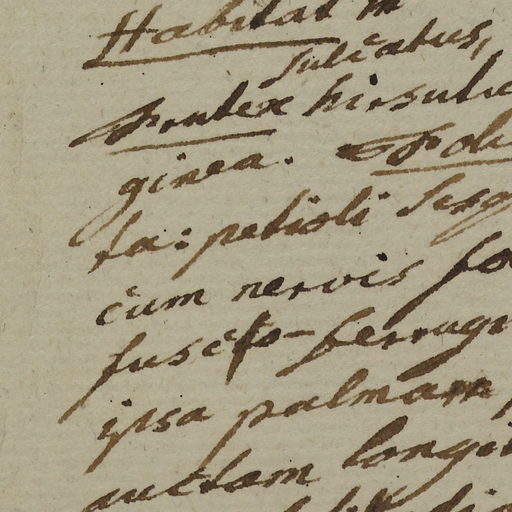 Habitat in
sulcatus,
Frutex hirsutu
ginea. Foli
ta: petioli sesq
cum nervis fo
fusco-ferrugi
ipsa palmam
auctam longi